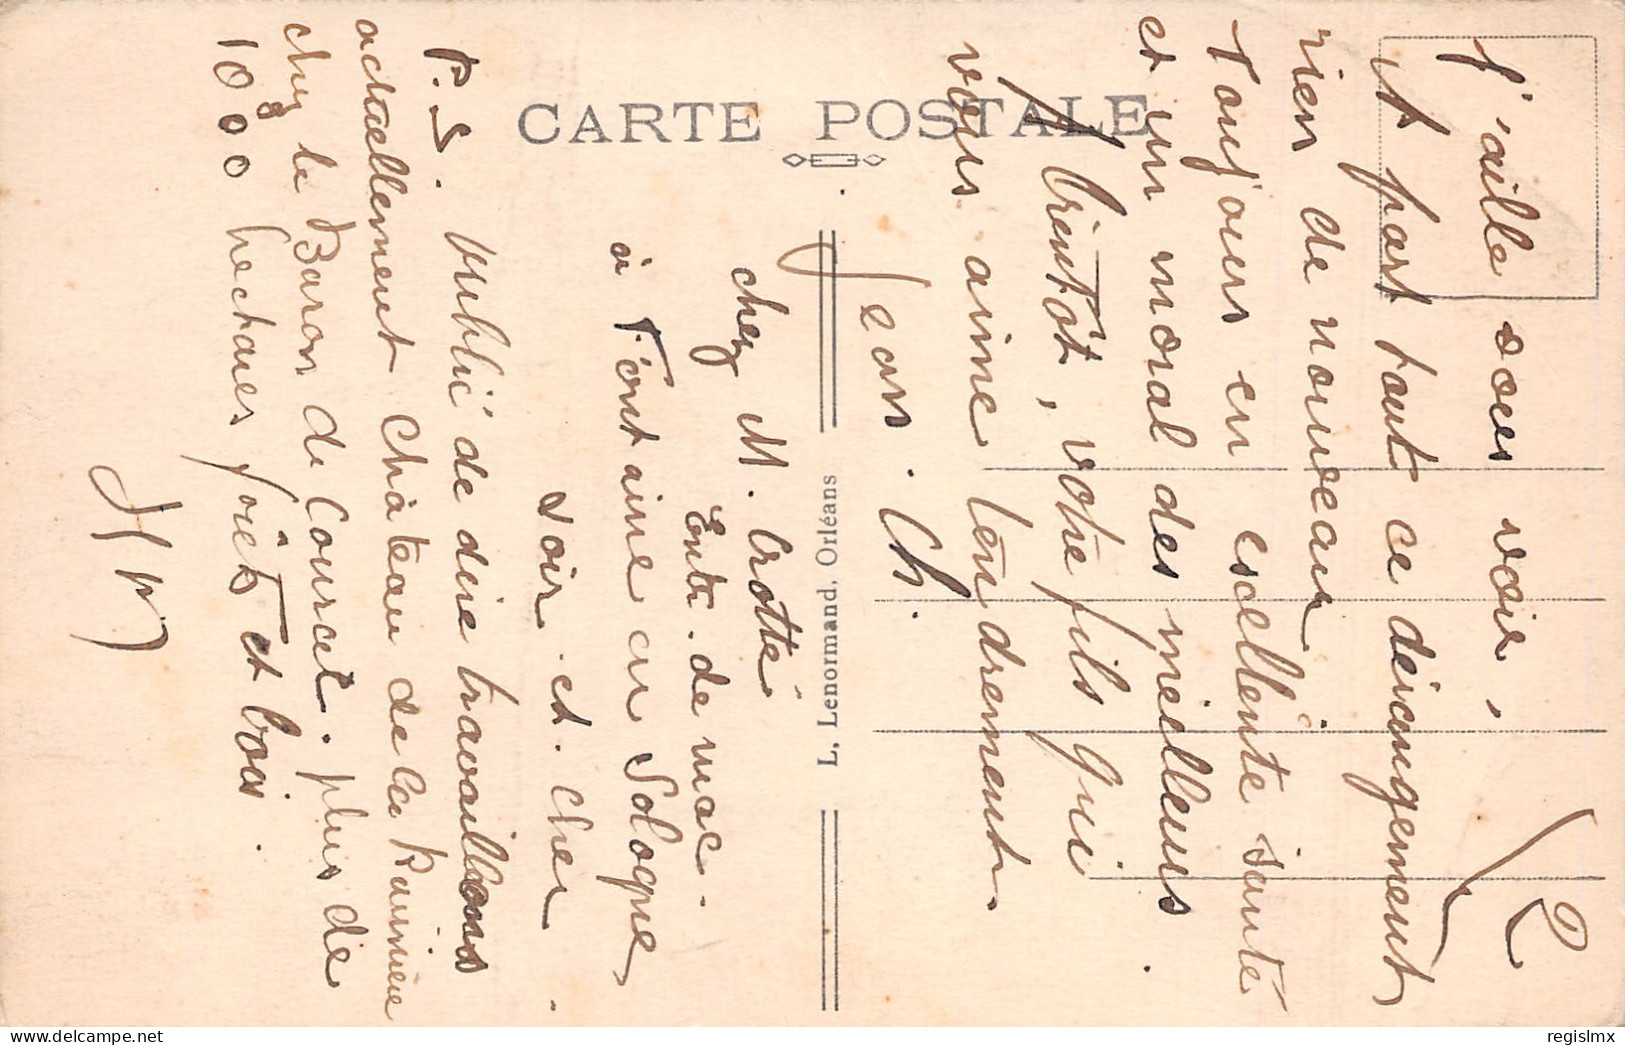 j'aille vous voir,
et part tout ce dérangement
rien de nouveau
Toujours en escellente santé
et un moral des meilleurs
A bientôt, votre fils qui
vous aime tendrement
Jean. Ch.
chez M. Crotté
Entr. de mac.
à Fontaine en Sologne
Loir et Cher.
P.S. oublié de dire travaillons
actuellement château de la Ravinière
chez le Baron de Courcel. plus de
1000 hectares forêts et bois.
CARTE POSTALE
L. Lenormand, Orléans
regislmx